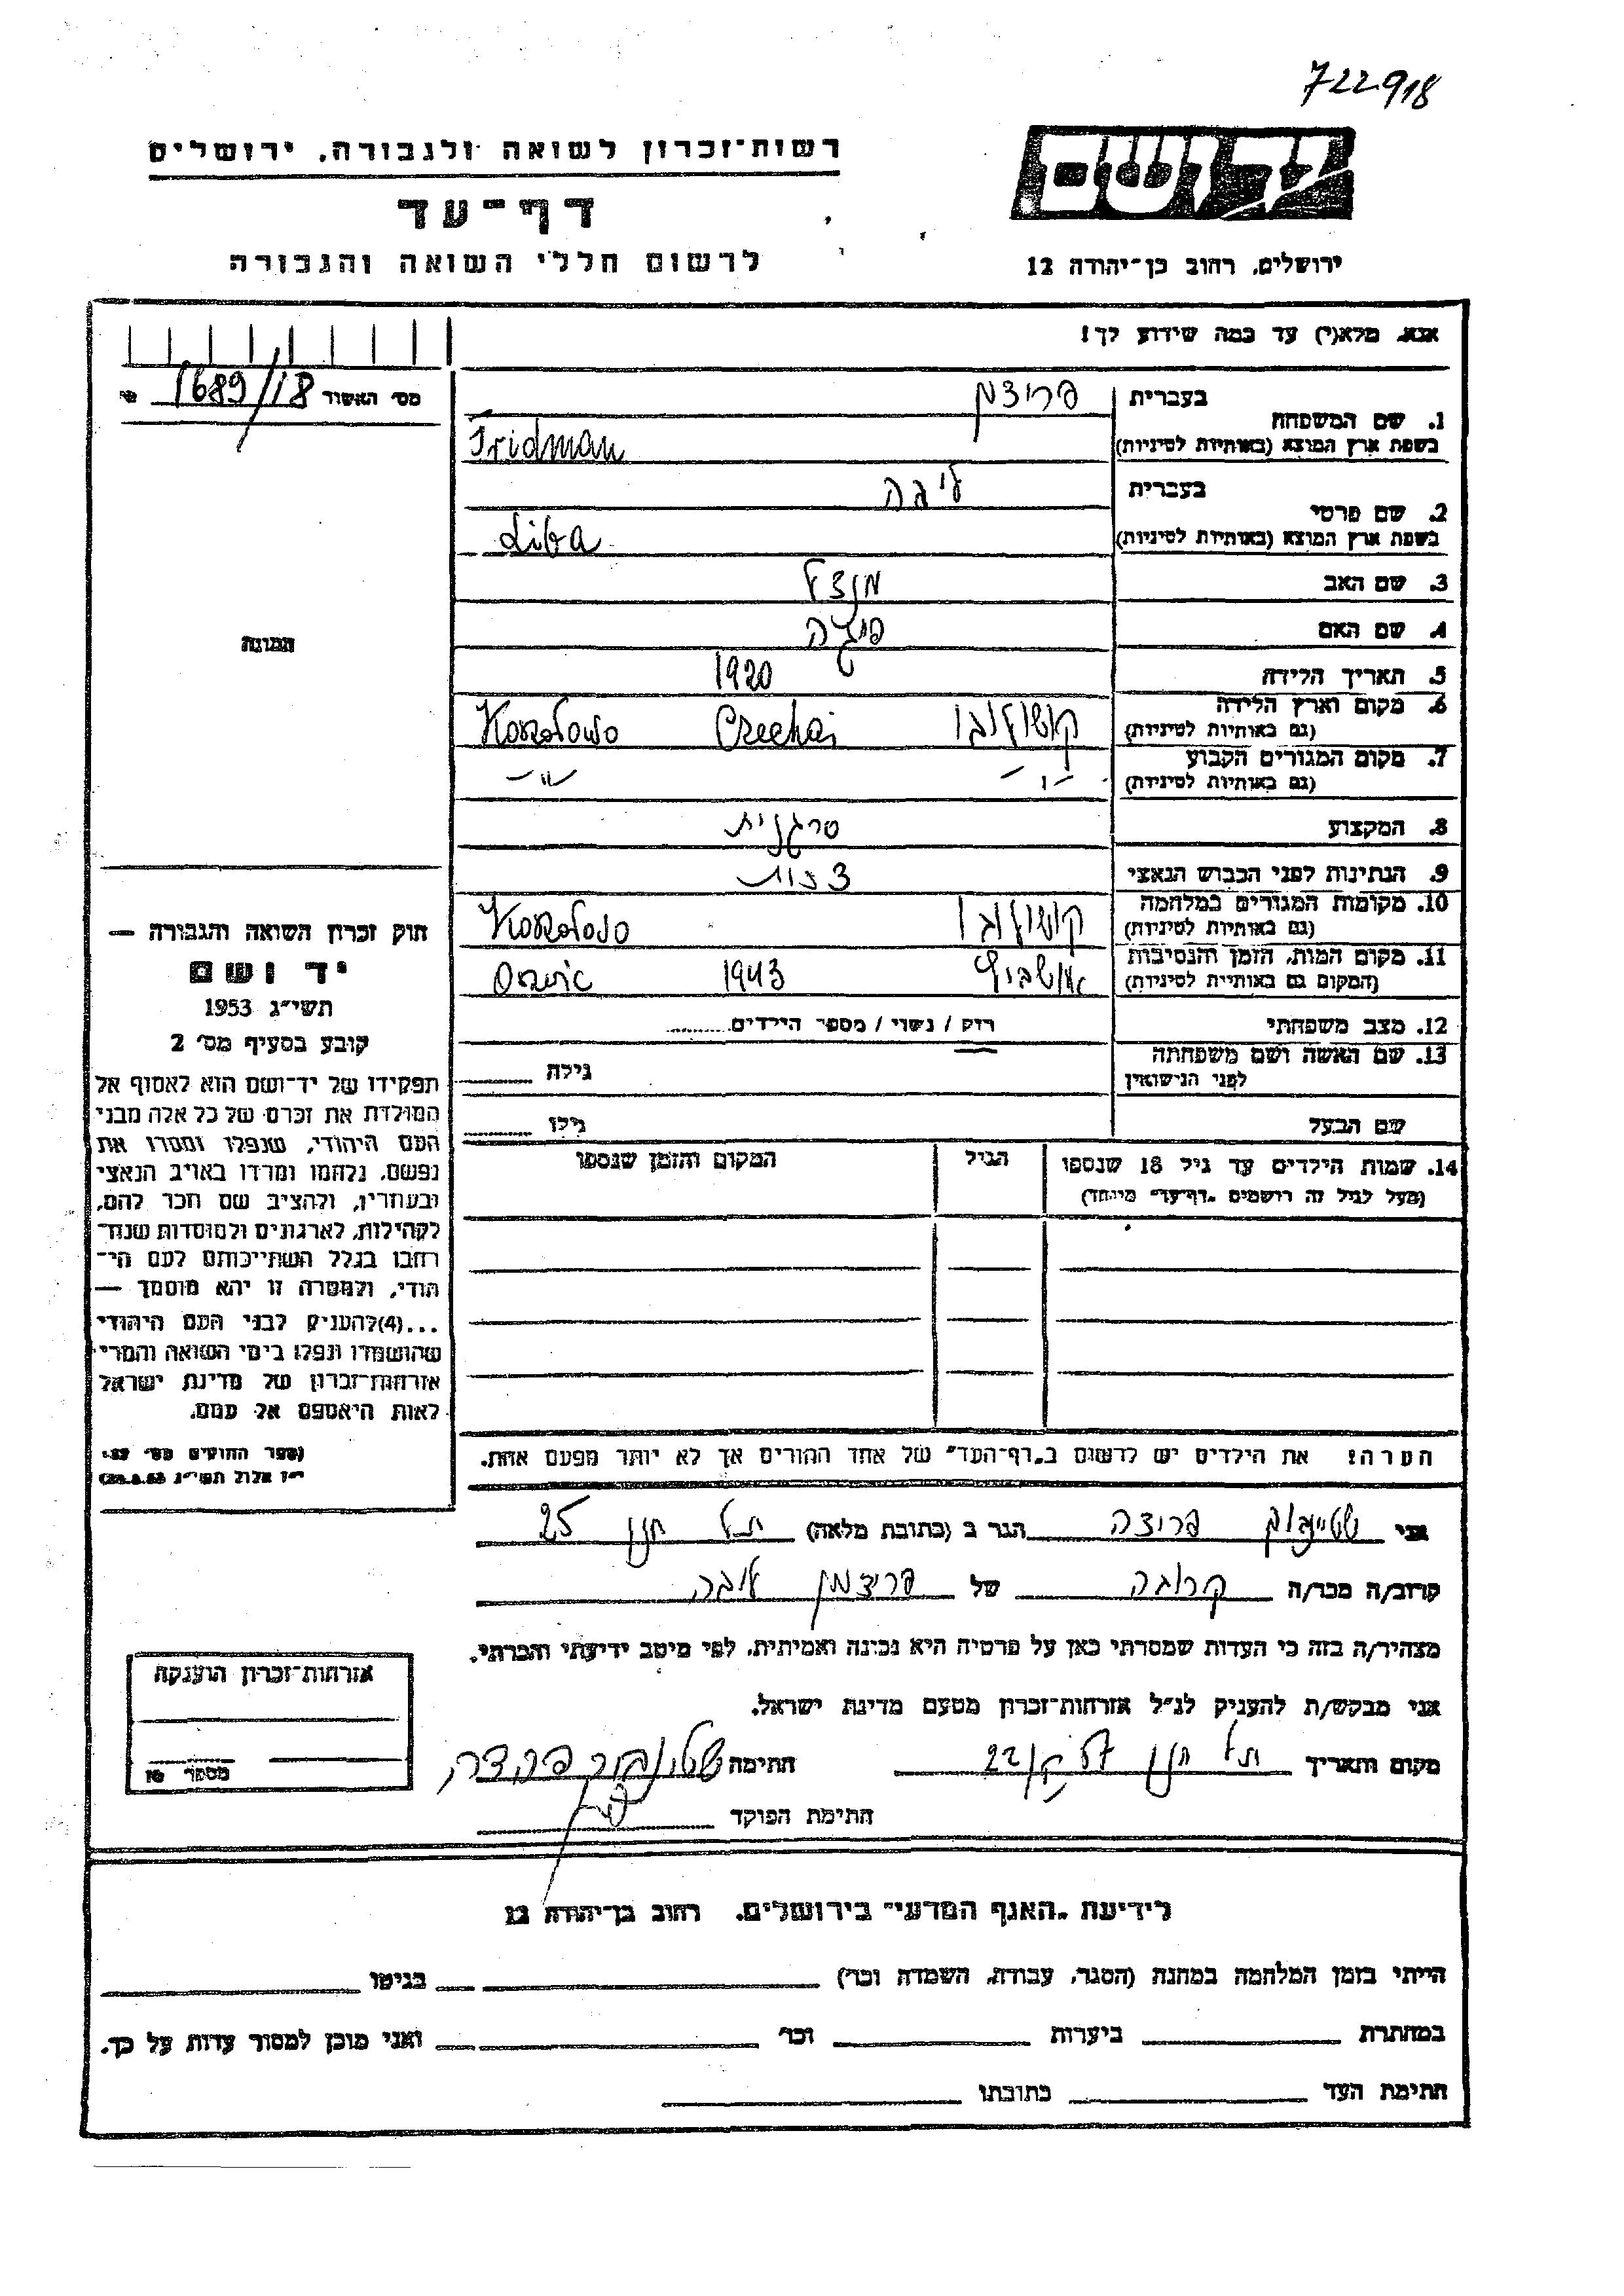 722918
רשות־זכרון לשואה ולגבורה, ירושלים
דף־עד
לרשום חללי השואה והגבורה
יד ושם
ירושלים, רחוב בן־יהודה 12
אנא, מלא(י) עד כמה שידוע לך!
מס׳ האשור 1689/18
1. שם המשפחה בעברית פרידמן
בשפת ארץ המוצא (באותיות לטיניות) Fridman
2. שם פרטי בעברית ליבה
בשפת ארץ המוצא (באותיות לטיניות) Liba
3. שם האב מנדל
4. שם האם פיגה
5. תאריך הלידה 1920
6. מקום וארץ הלידה (גם באותיות לטיניות) קושולובו Czechai Koszolowo
7. מקום המגורים הקבוע (גם באותיות לטיניות) -״- -״-
8. המקצוע
9. הנתינות לפני הכבוש הנאצי
10. מקומות המגורים במלחמה (גם באותיות לטיניות) קושולובו Koszolowo
11. מקום המות, הזמן והנסיבות (המקום גם באותיות לטיניות) אושביץ 1943 Oswic
12. מצב משפחתי רווק / נשוי / מספר הילדים
13. שם האשה ושם משפחתה לפני הנישואין גילה
שם הבעל גילו
14. שמות הילדים עד גיל 18 שנספו הגיל המקום והזמן שנספו
(מעל לגיל זה רושמים „דף־עד״ מיוחד)
הערה: את הילדים יש לרשום ב„דף־העד״ של אחד ההורים אך לא יותר מפעם אחת.
תמונה
חוק זכרון השואה והגבורה —
יד ושם
תשי״ג 1953
קובע בסעיף מס׳ 2
תפקידו של יד־ושם הוא לאסוף אל
המולדת את זכרם של כל אלה מבני
העם היהודי, שנפלו ומסרו את
נפשם, נלחמו ומרדו באויב הנאצי
ובעוזריו, ולהציב שם וזכר להם,
לקהילות, לארגונים ולמוסדות שנח־
רבו בגלל השתייכותם לעם הי־
הודי, ולמטרה זו יהא מוסמך —
...(4)להעניק לבני העם היהודי
שהושמדו ונפלו בימי השואה והמרי
אזרחות־זכרון של מדינת ישראל
לאות היאספם אל עמם.
(ספר החוקים מס׳ 132
י״ז אלול תשי״ג 28.8.53)
אני פרידה הגר ב (כתובת מלאה) תל חנן 25
קרוב/ה מכר/ה קרובה של פרידמן ליבה
מצהיר/ה בזה כי העדות שמסרתי כאן על פרטיה היא נכונה ואמיתית, לפי מיטב ידיעתי והכרתי.
אני מבקש/ת להעניק לנ״ל אזרחות־זכרון מטעם מדינת ישראל.
מקום ותאריך תל חנן חתימה
חתימת הפוקד
אזרחות־זכרון הוענקה
מספר
לידיעת „האגף המדעי״ בירושלים, רחוב בן־יהודה 12
הייתי בזמן המלחמה במחנה (הסגר, עבודה, השמדה וכו׳) בגיטו
במחתרת ביערות וכו׳ ואני מוכן למסור עדות על כך.
חתימת העד כתובתו